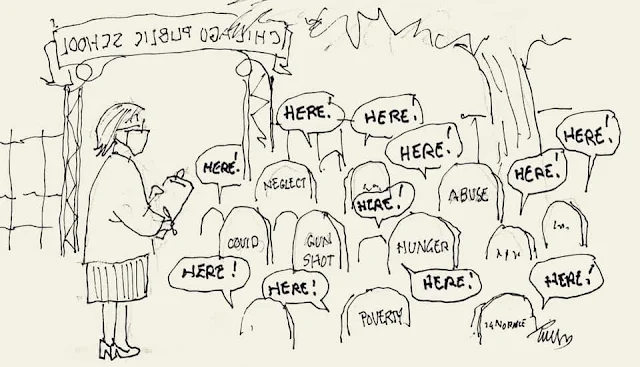 CHICAGO PUBLIC SCHOOL
HERE!
HERE!
HERE!
HERE!
HERE!
HERE!
NEGLECT
ABUSE
HERE!
COVID
GUN
SHOT
HUNGER
HERE!
HERE!
HERE!
HERE!
POVERTY
IGNORNCE